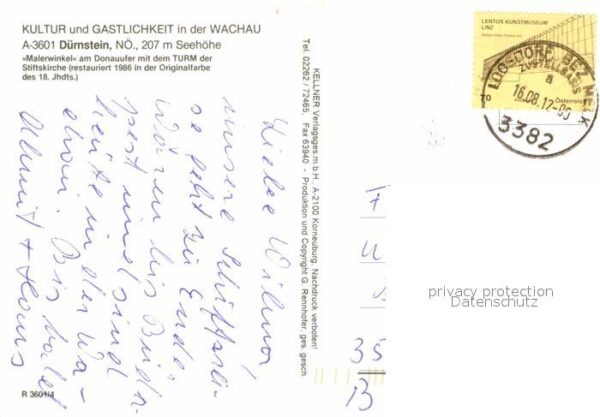 KULTUR und GASTLICHKEIT in der WACHAU
A-3601 Dürnstein, NÖ., 207 m Seehöhe
»Malerwinkel« am Donauufer mit dem TURM der
Stiftskirche (restauriert 1986 in der Originalfarbe
des 18. Jhdts.)
Liebe
unsere Schiffsrei-
se geht zu Ende.
Waren bis Buda-
pest und sind
heute in der Wa-
chau. Bis bald
Helmut + Hans
R 3601/4
KELLNER Verlagsges m.b.H., A-2100 Korneuburg. Nachdruck verboten!
Tel. 02262 / 72465, Fax 63940 - Produktion und Copyright G. Rennhofer, ges. gesch.
LENTOS KUNSTMUSEUM
LINZ
70
Österreich
LOOSDORF BEZ MELK
ZUSTELLBASIS
a
16.08.12-00
3382
F
U
35
B
privacy protection
Datenschutz